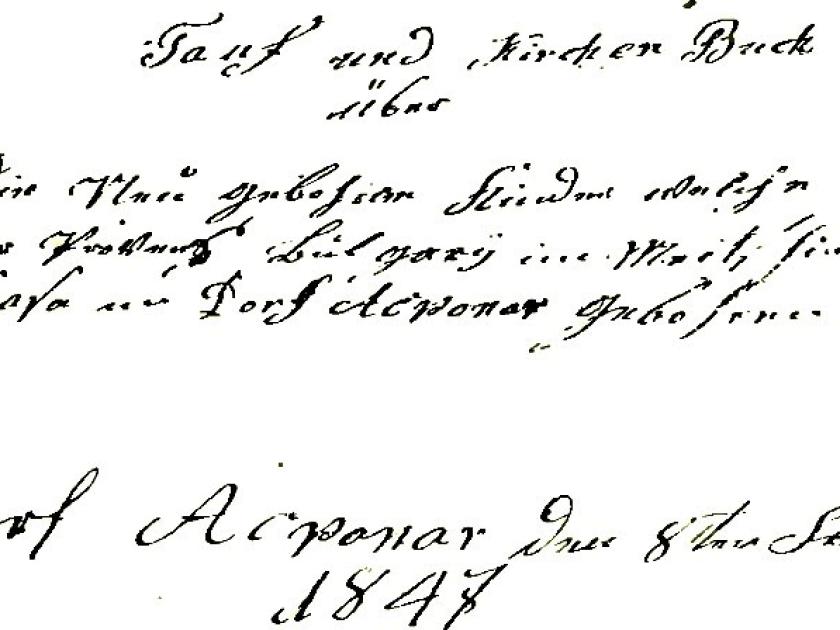 Tauf und Kirchen Buch
über
die Neü gebohrne Kinder welche
Provenz Bülgarÿ im
im Dorf Acponar gebohren
Acponar den 8ten
184